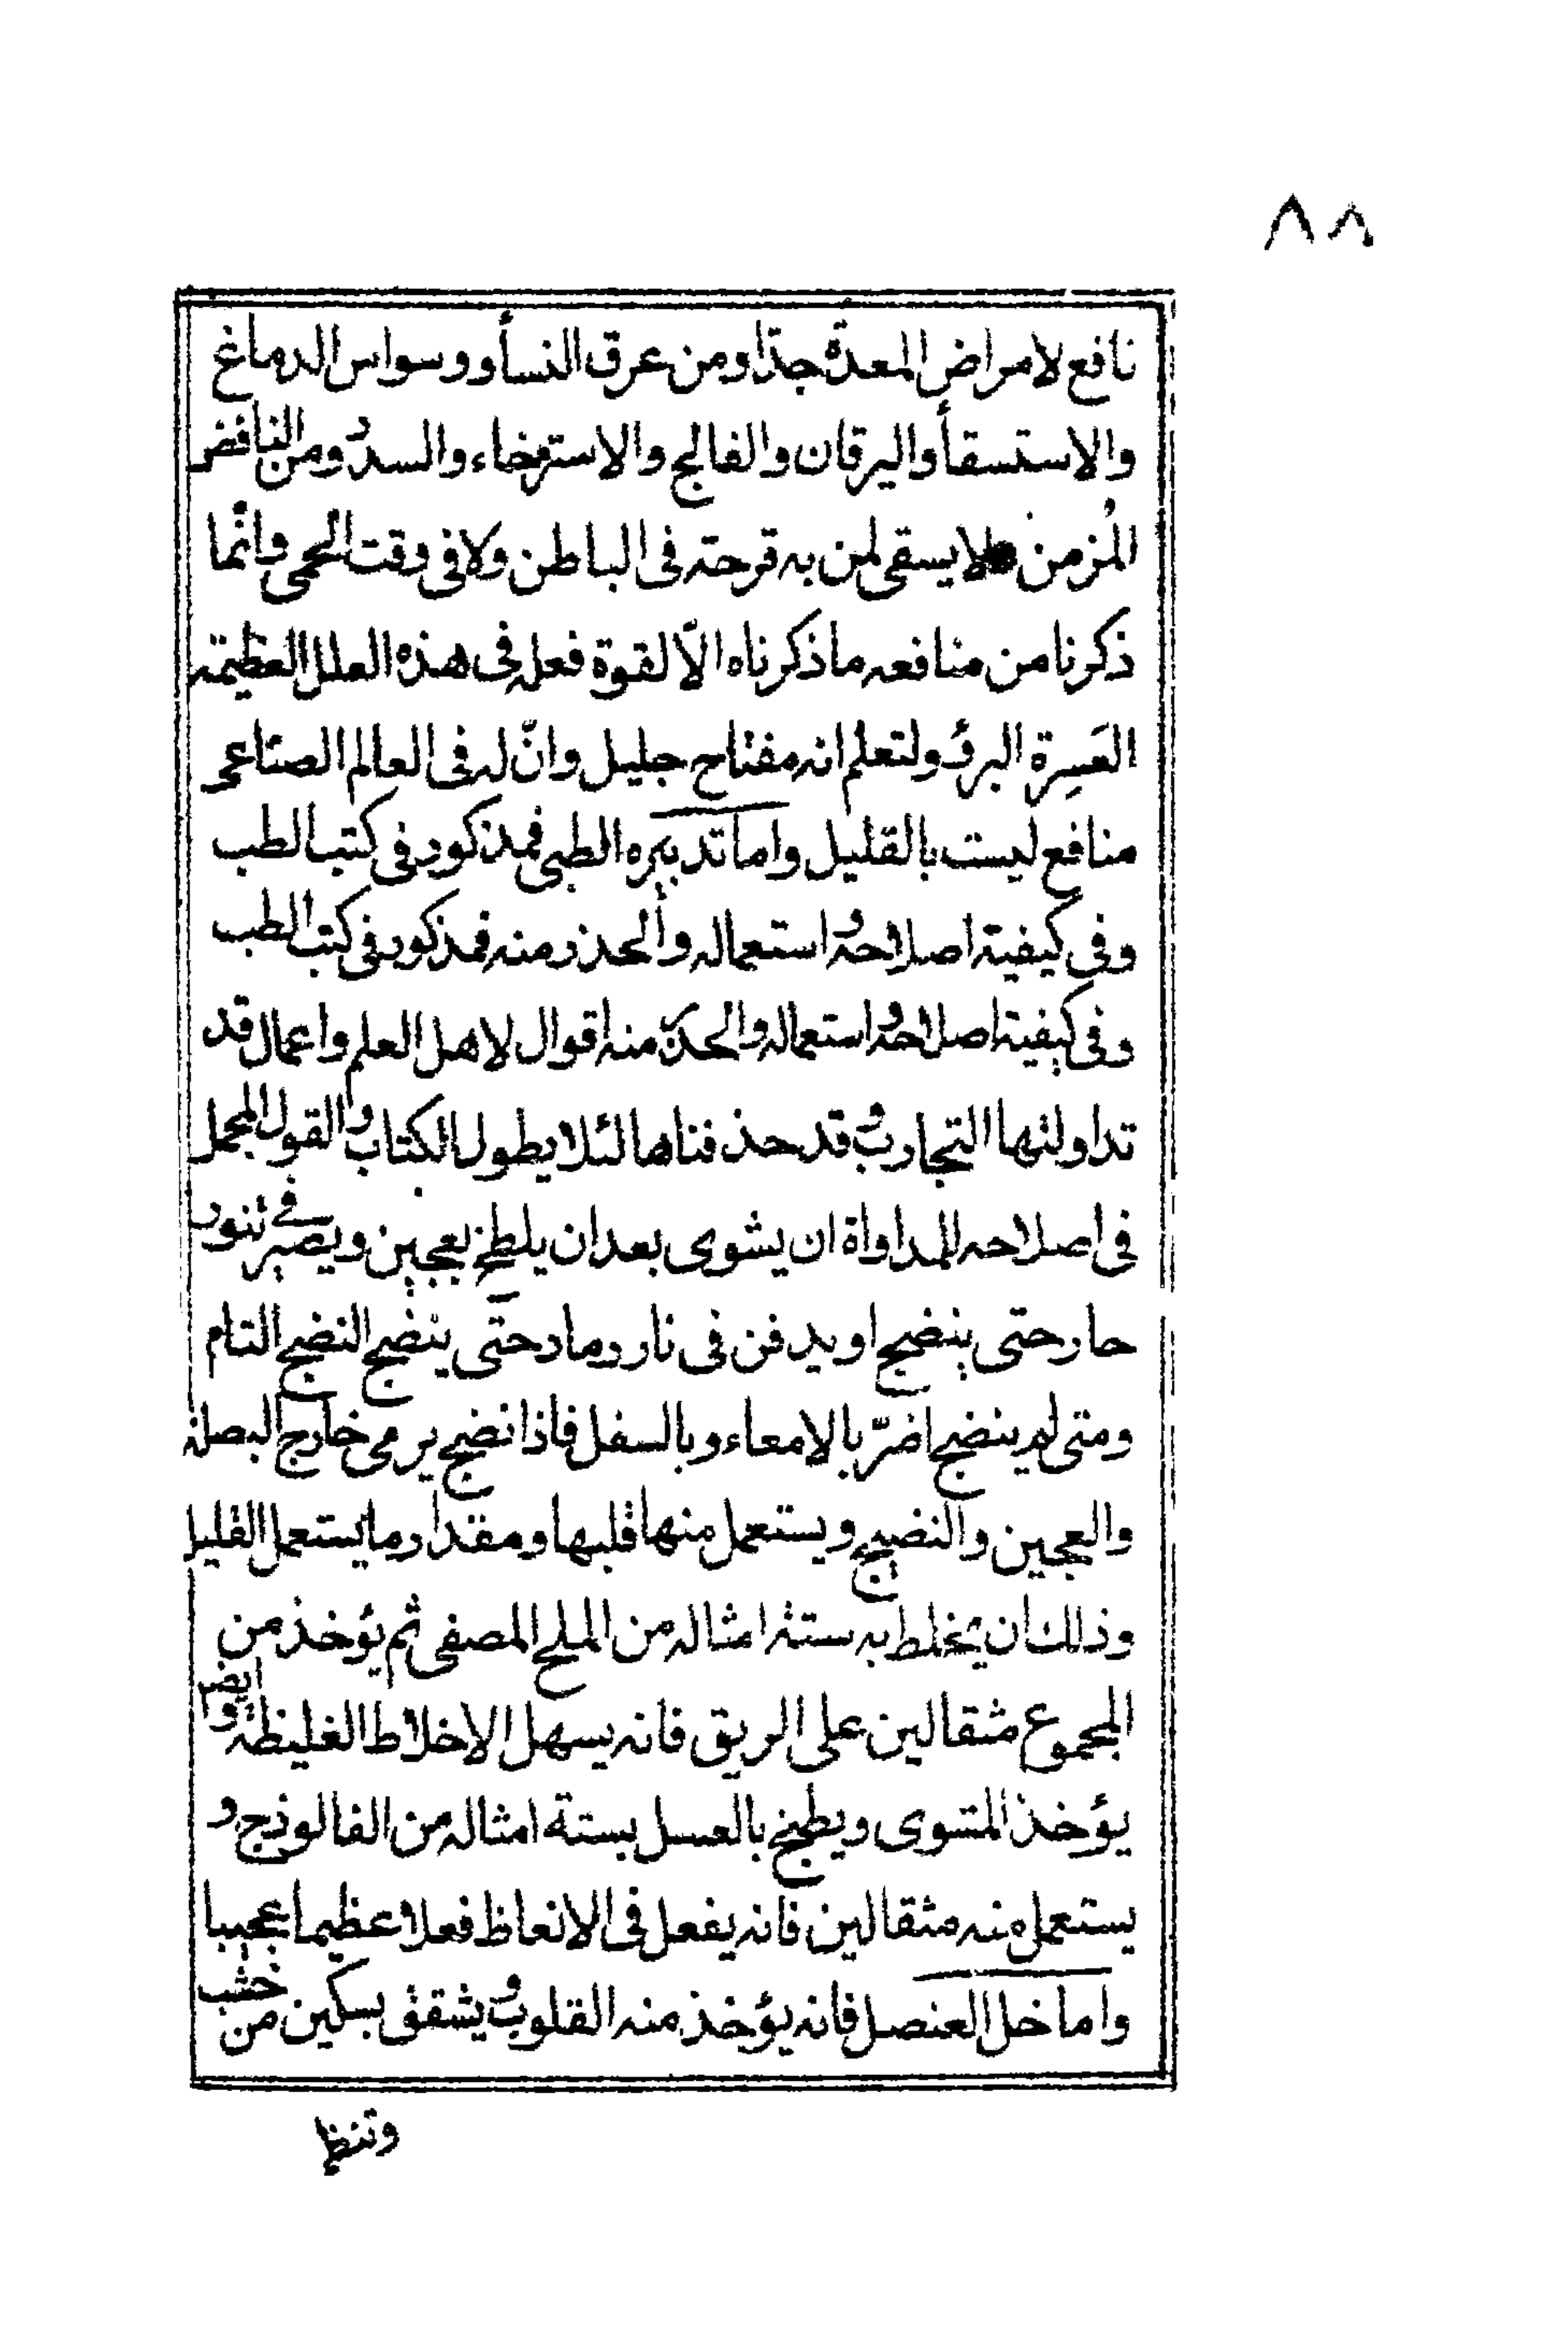 ٨٨
نافع لامراض المعدة جدّا ومن عرق النسأ ووسواس الدماغ
والاستسقأ واليرقان والفالج والاسترخاء والسدر ومن النافض
المُزمن ولا يسقى لمن به قرحة فى الباطن ولا فى وقت الحمى وانّما
ذكرنا من منافعه ما ذكرناه الّا لقوة فعله فى هذه العلل العظيمة
العَسِرة البرؤ ولتعلم انه مفتاح جليل وانّ له فى العالم الصناعى
منافع ليست بالقليل واما تدبيره الطبى فمذكور فى كتب الطب
وفى كيفية اصلاحه و استعماله وألحذر منه فمذكور فى كتب الطب
وفى كيفية اصلاحه و استعماله والحذر منه اقوال لاهل العلم واعمال قد
تداولتها التجارب و قد حذفناها لئلا يطول الكتاب والقول المجمل
فى اصلاحه للمداواة ان يشوى بعد ان يلطخ بعجين ويصير فے تنور
حار حتى ينضج او يدفن فى نار رماد حتّى ينضج النضج التام
ومتى لم ينضج اضرّ بالامعاء وبالسفل فاذا نضج يرمى خارج البصلة
والعجين والنضيج ويستعمل منها قلبها ومقدار ما يستعمل القليل
وذلك ان يخلط به ستة امثاله من الملح المصفى ثم يؤخذ من
المجموع مثقالين على الريق فانه يسهل الاخلاط الغليظة وايضا
يؤخذ المشوى ويطبخ بالعسل بستة امثاله من الفالوذج و
يستعمل منه مثقالين فانه يفعل فى الانعاظ فعلا عظيما عجيبا
واما خل العنصل فانه يؤخذ منه القلوب و يشقق بسكين من خشب
وتنظم